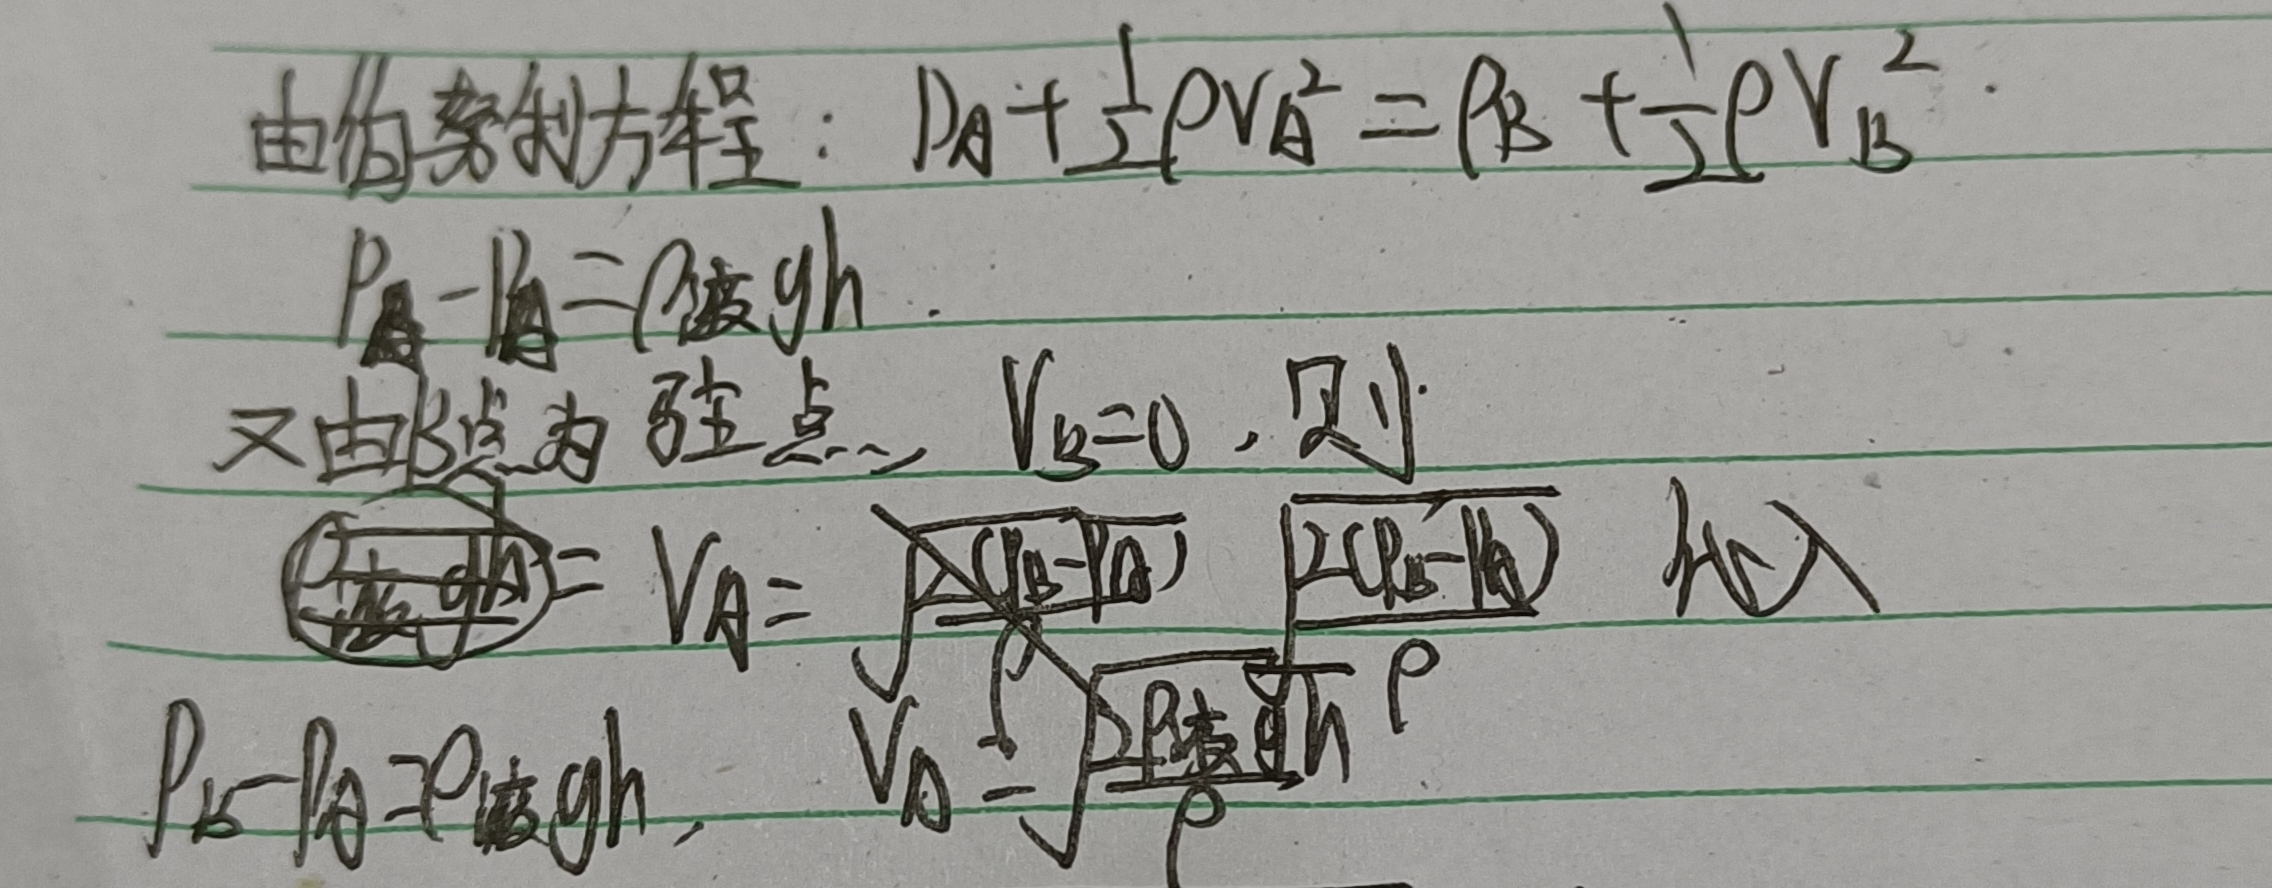 由伯努利方程: P_A + 1/2 ρV_A² = P_B + 1/2 ρV_B².
P_A - P_A = ρ液gh.
又由B点为驻点, V_B = 0, 则
V_A = √(2(P_B - P_A)/ρ) 代入
P_B - P_A = ρ液gh, V_A = √(2ρ液gh/ρ)